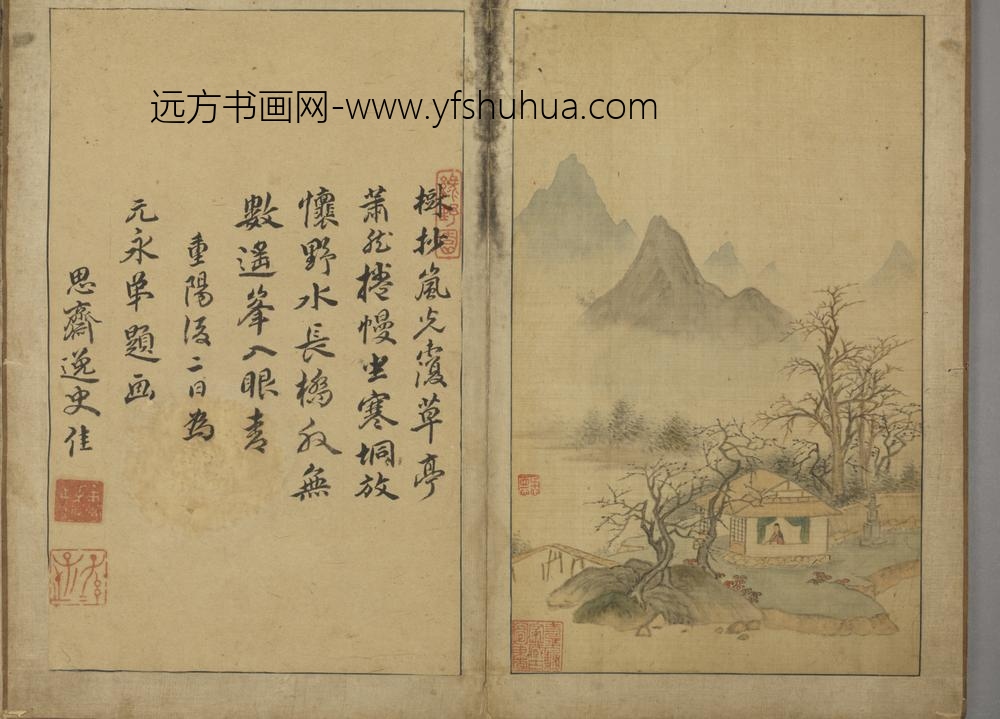 远方书画网-www.yfshuhua.com
樹抄嵐光濕草亭
蕭然捲幔坐寒垌放
懷野水長橋外無
數遙峯入眼青
重陽後二日為
元永弟題画
思齋逸史佳
綠野園